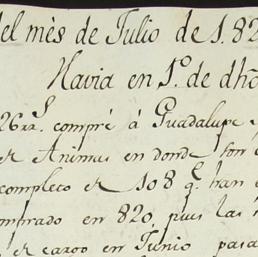 del mès de Julio de 1.82
Havia en 1.º de dho
26 rr.s compré á Guadalupe
de Animas en donde son
completo de 108 q.s han
mprado en 820, pues las
de cargo en Junio pasa